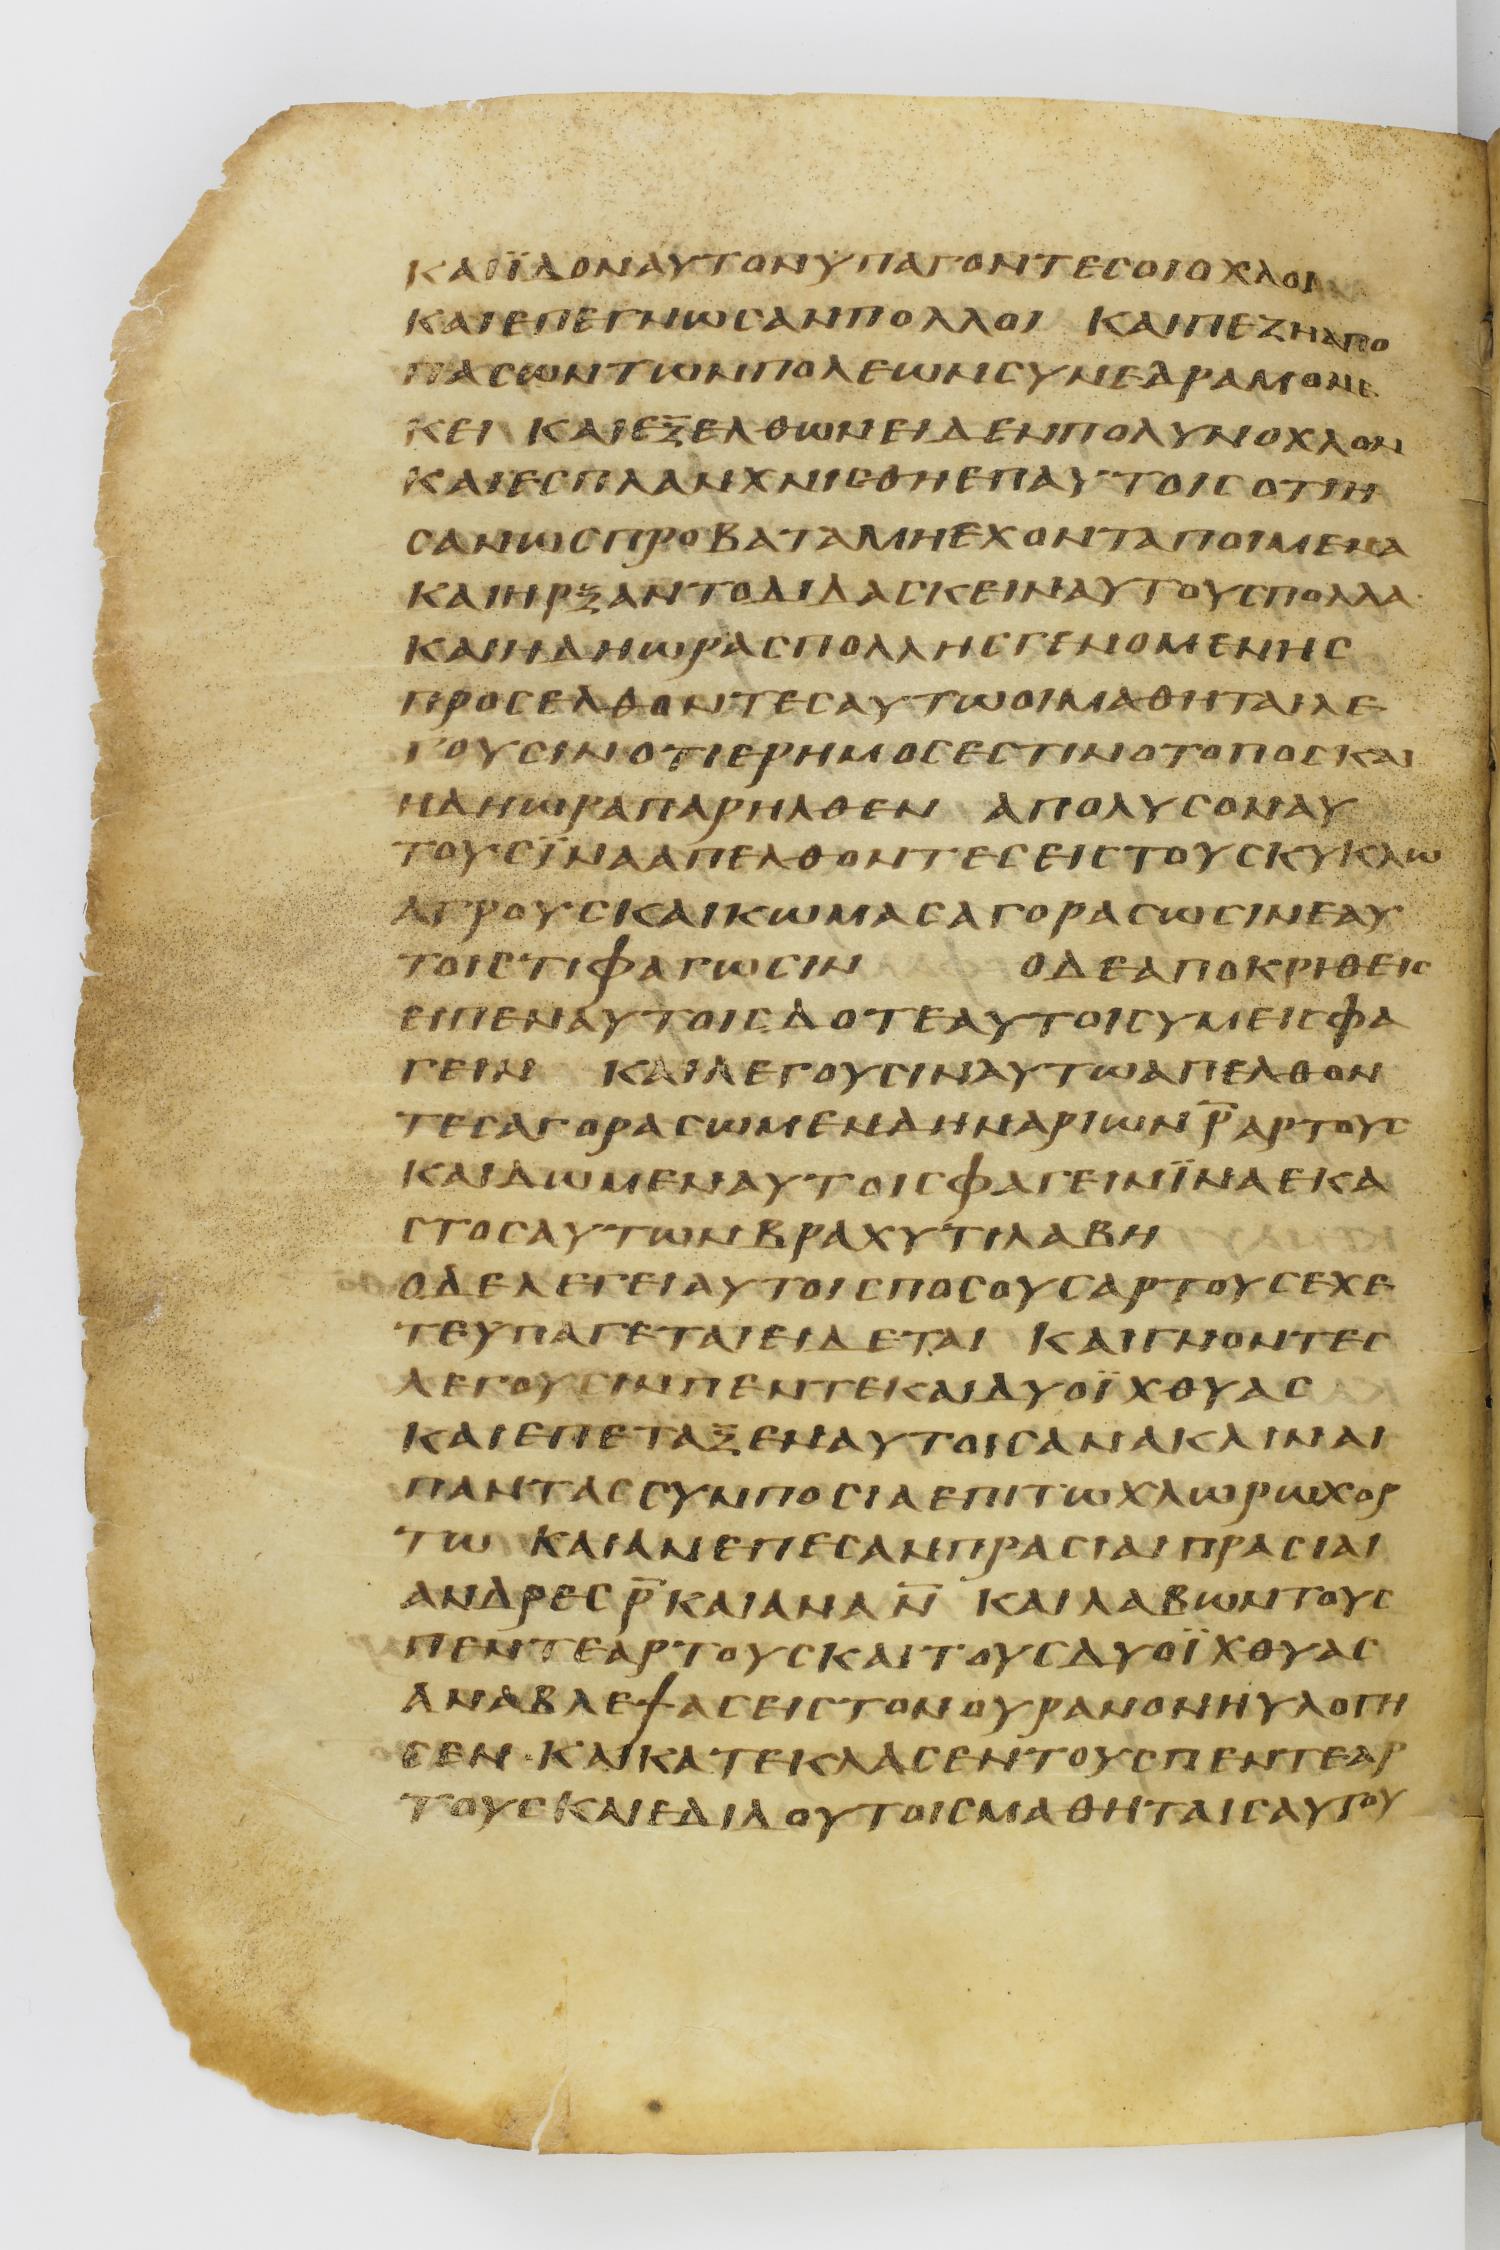 ΚΑΙΪΔΟΝΑΥΤΟΝΥΠΑΓΟΝΤΕСΟΙΟΧΛΟΙ
ΚΑΙΕΠΕΓΝΩСΑΝΠΟΛΛΟΙ ΚΑΙΠΕΖΗΑΠΟ
ΠΑСΩΝΤΩΝΠΟΛΕΩΝСΥΝΕΔΡΑΜΟΝΕ
ΚΕΙ ΚΑΙΕΞΕΛΘΩΝΕΙΔΕΝΠΟΛΥΝΟΧΛΟΝ
ΚΑΙΕСΠΛΑΝΧΝΙСΘΗΕΠΑΥΤΟΙСΟΤΙΗ
СΑΝΩСΠΡΟΒΑΤΑΜΗΕΧΟΝΤΑΠΟΙΜΕΝΑ
ΚΑΙΗΡΞΑΝΤΟΔΙΔΑСΚΕΙΝΑΥΤΟΥСΠΟΛΛΑ·
ΚΑΙΗΔΗΩΡΑСΠΟΛΛΗСΓΕΝΟΜΕΝΗС
ΠΡΟСΕΛΘΟΝΤΕСΑΥΤΩΟΙΜΑΘΗΤΑΙΛΕ
ΓΟΥСΙΝΟΤΙΕΡΗΜΟСΕСΤΙΝΟΤΟΠΟСΚΑΙ
ΗΔΗΩΡΑΠΑΡΗΛΘΕΝ ΑΠΟΛΥСΟΝΑΥ
ΤΟΥСΪΝΑΑΠΕΛΘΟΝΤΕСΕΙСΤΟΥСΚΥΚΛΩ
ΑΓΡΟΥСΚΑΙΚΩΜΑСΑΓΟΡΑСΩСΙΝΕΑΥ
ΤΟΙСΤΙΦΑΓΩСΙΝ ΟΔΕΑΠΟΚΡΙΘΕΙС
ΕΙΠΕΝΑΥΤΟΙСΔΟΤΕΑΥΤΟΙСΥΜΕΙСΦΑ
ΓΕΙΝ ΚΑΙΛΕΓΟΥСΙΝΑΥΤΩΑΠΕΛΘΟΝ
ΤΕСΑΓΟΡΑСΩΜΕΝΔΗΝΑΡΙΩΝΡ̅ΑΡΤΟΥС
ΚΑΙΔΩΜΕΝΑΥΤΟΙСΦΑΓΕΙΝΪΝΑΕΚΑ
СΤΟСΑΥΤΩΝΒΡΑΧΥΤΙΛΑΒΗ
ΟΔΕΛΕΓΕΙΑΥΤΟΙСΠΟСΟΥСΑΡΤΟΥСΕΧΕ
ΤΕΥΠΑΓΕΤΑΙΕΙΔΕΤΑΙ ΚΑΙΓΝΟΝΤΕС
ΛΕΓΟΥСΙΝΠΕΝΤΕΚΑΙΔΥΟΪΧΘΥΑС
ΚΑΙΕΠΕΤΑΞΕΝΑΥΤΟΙСΑΝΑΚΛΙΝΑΙ
ΠΑΝΤΑССΥΝΠΟСΙΑΕΠΙΤΩΧΛΩΡΩΧΟΡ
ΤΩ ΚΑΙΑΝΕΠΕСΑΝΠΡΑСΙΑΙΠΡΑСΙΑΙ
ΑΝΔΡΕСΡ̅ΚΑΙΑΝΑΝ̅ ΚΑΙΛΑΒΩΝΤΟΥС
ΠΕΝΤΕΑΡΤΟΥСΚΑΙΤΟΥСΔΥΟΪΧΘΥΑС
ΑΝΑΒΛΕΨΑСΕΙСΤΟΝΟΥΡΑΝΟΝΗΥΛΟΓΗ
СΕΝ·ΚΑΙΚΑΤΕΚΛΑСΕΝΤΟΥСΠΕΝΤΕΑΡ
ΤΟΥСΚΑΙΕΔΙΔΟΥΤΟΙСΜΑΘΗΤΑΙСΑΥΤΟΥ